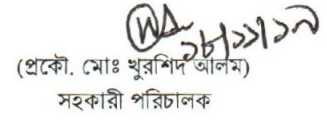 ১৮/১১/১৯
(প্রকৌ. মোঃ খুরশিদ আলম)
সহকারী পরিচালক